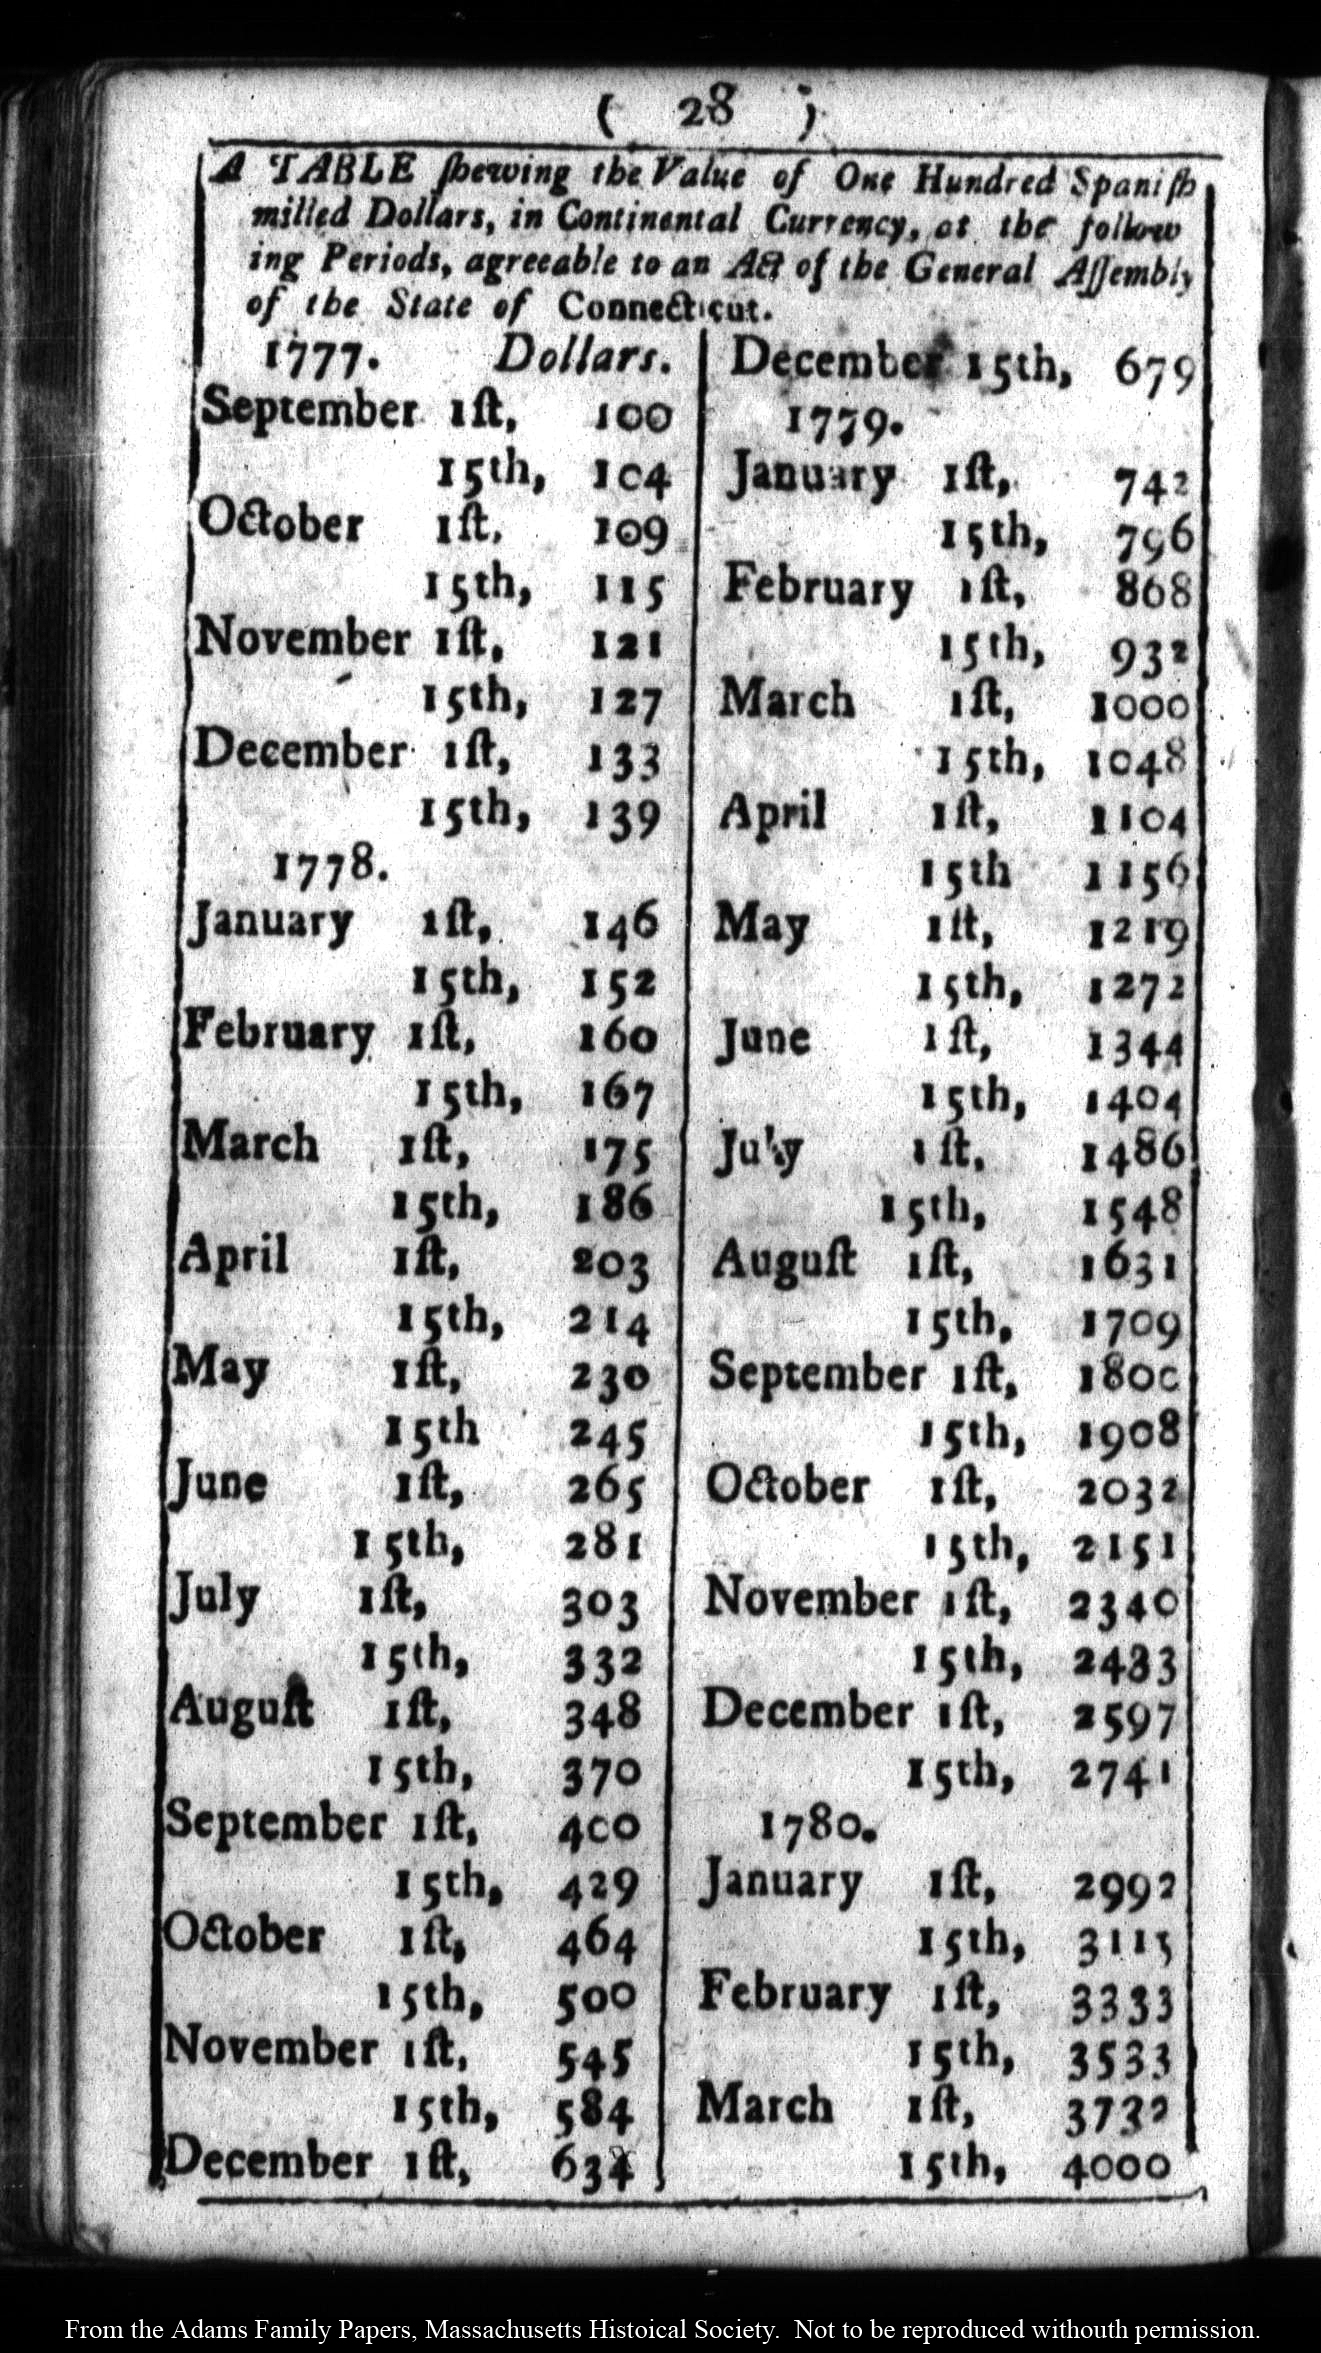 ( 28 )
A TABLE ſhewing the Value of One Hundred Spaniſh
milled Dollars, in Continental Currency, at the follow
ing Periods, agreeable to an Act of the General Aſſembly
of the State of Connecticut.
1777. Dollars.
September 1ſt, 100
15th, 104
October 1ſt. 109
15th, 115
November 1ſt, 121
15th, 127
December 1ſt, 133
15th, 139
1778.
January 1ſt, 146
15th, 152
February 1ſt, 160
15th, 167
March 1ſt, 175
15th, 186
April 1ſt, 203
15th, 214
May 1ſt, 230
15th 245
June 1ſt, 265
15th, 281
July 1ſt, 303
15th, 332
Auguſt 1ſt, 348
15th, 370
September 1ſt, 400
15th, 429
October 1ſt, 464
15th, 500
November 1ſt, 545
15th, 584
December 1ſt, 634
December 15th, 679
1779.
January 1ſt, 742
15th, 796
February 1ſt, 868
15th, 932
March 1ſt, 1000
15th, 1048
April 1ſt, 1104
15th 1156
May 1ſt, 1219
15th, 1272
June 1ſt, 1344
15th, 1404
July 1ſt, 1486
15th, 1548
Auguſt 1ſt, 1631
15th, 1709
September 1ſt, 1800
15th, 1908
October 1ſt, 2032
15th, 2151
November 1ſt, 2340
15th, 2483
December 1ſt, 2597
15th, 2741
1780.
January 1ſt, 2992
15th, 3115
February 1ſt, 3333
15th, 3533
March 1ſt, 3732
15th, 4000
From the Adams Family Papers, Massachusetts Histoical Society. Not to be reproduced withouth permission.